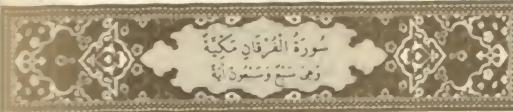 سُورَةُ الْفُرْقَانِ مَكِّيَّةٌ
وَهِىَ سَبْعٌ وَسَبْعُونَ اٰيَةً